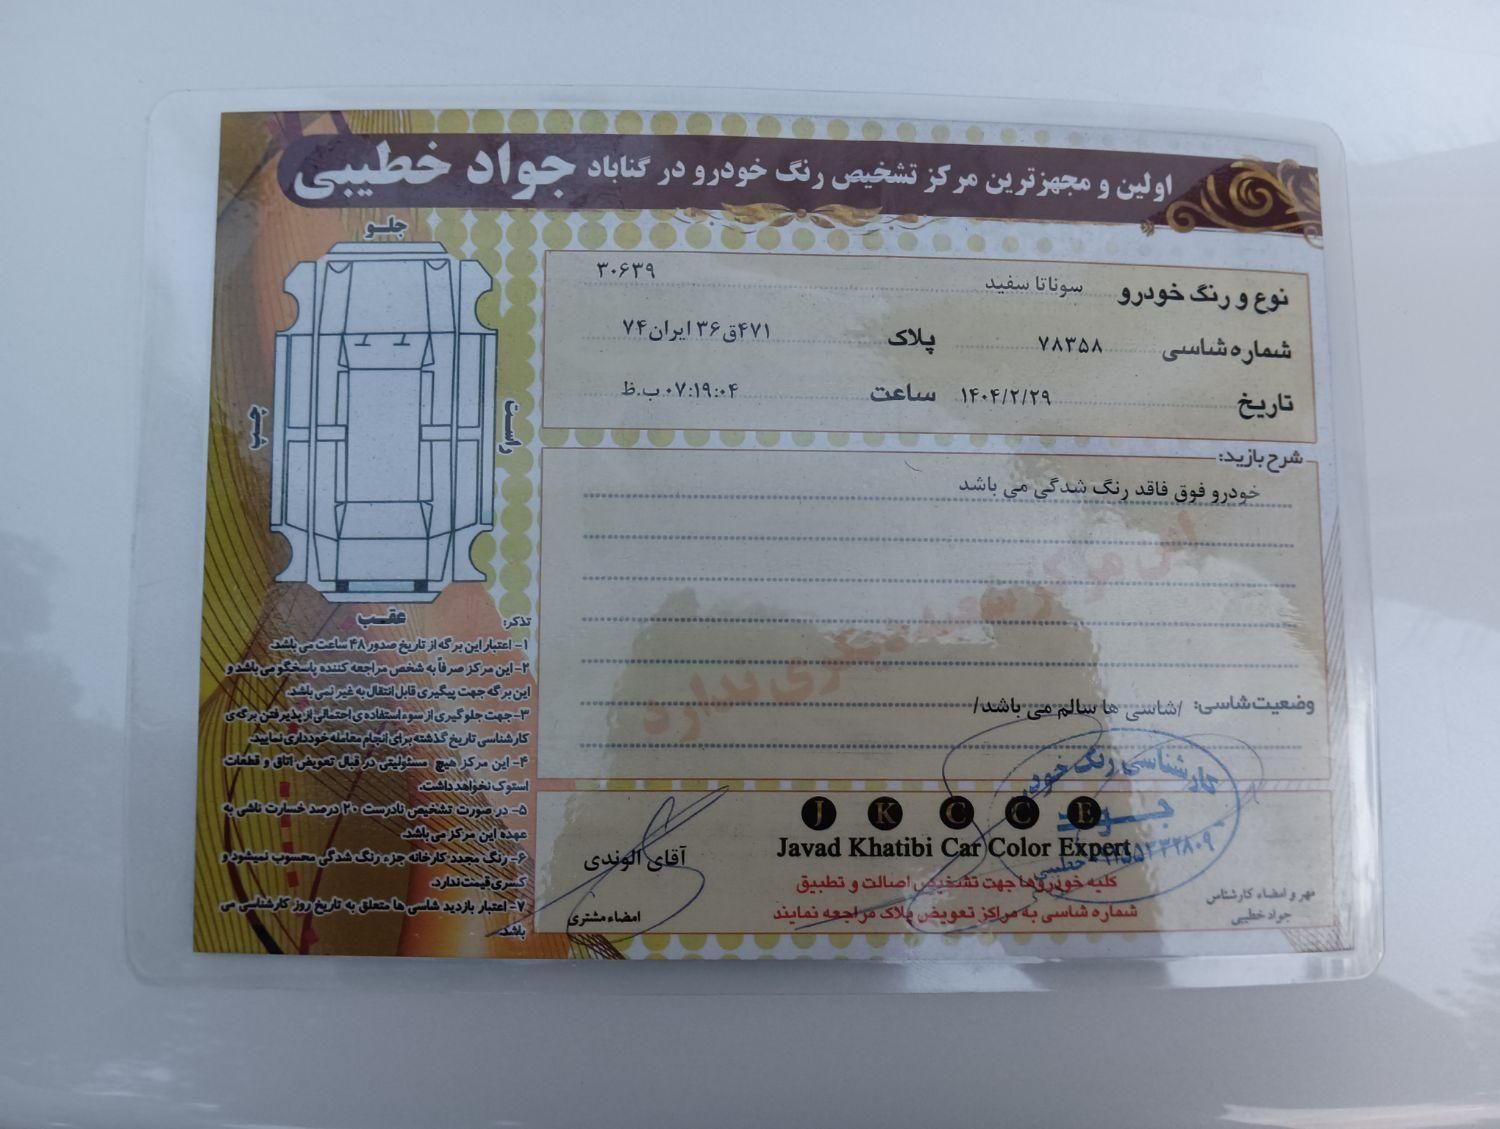 اولین و مجهزترین مرکز تشخیص رنگ خودرو در گناباد جواد خطیبی
جلو
راست
چپ
عقب
نوع و رنگ خودرو سوناتا سفید ۳۰۶۳۹
شماره شاسی ۷۸۳۵۸ پلاک ۴۷۱ق۳۶ ایران۷۴
تاریخ ۱۴۰۴/۲/۲۹ ساعت ۰۷:۱۹:۰۴ ب.ظ
شرح بازید:
خودرو فوق فاقد رنگ شدگی می باشد
این مرکز شعبه دیگری ندارد
وضعیت شاسی: /شاسی ها سالم می باشد/
تذکر:
۱- اعتبار این برگه از تاریخ صدور ۴۸ ساعت می باشد.
۲- این مرکز صرفاً به شخص مراجعه کننده پاسخگو می باشد و
این برگه جهت پیگیری قابل انتقال به غیر نمی باشد.
۳- جهت جلوگیری از سوء استفاده ی احتمالی از پذیرفتن برگه ی
کارشناسی تاریخ گذشته برای انجام معامله خودداری نمایید.
۴- این مرکز هیچ مسئولیتی در قبال تعویض اتاق و قطعات
استوک نخواهد داشت.
۵- در صورت تشخیص نادرست ۲۰ درصد خسارت ناشی به
عهده این مرکز می باشد.
۶- رنگ مجدد کارخانه جزء رنگ شدگی محسوب نمیشود و
کسری قیمت ندارد.
۷- اعتبار بازدید شاسی ها متعلق به تاریخ روز کارشناسی می
باشد.
کارشناسی رنگ خودرو
جـــواد
خطیبی
J K C C E
Javad Khatibi Car Color Expert
کلیه خودروها جهت تشخیص اصالت و تطبیق
شماره شاسی به مراکز تعویض پلاک مراجعه نمایند
مهر و امضاء کارشناس
جواد خطیبی
آقای الوندی
امضاء مشتری